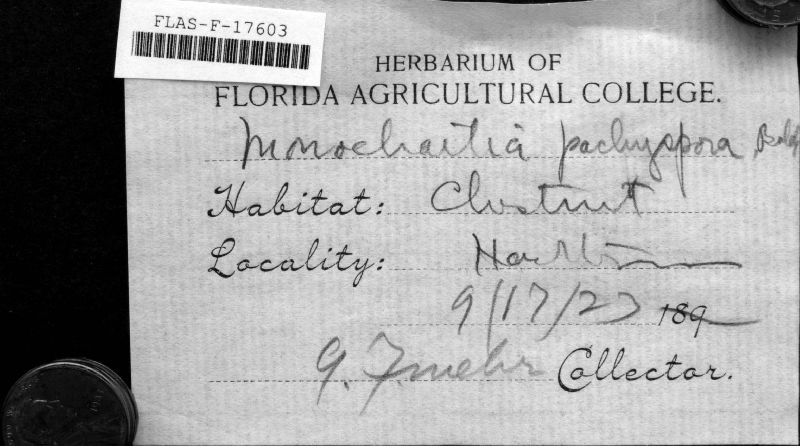 FLAS-F-17603
HERBARIUM OF
FLORIDA AGRICULTURAL COLLEGE.
Monochaetia pachyspora
Habitat: Chestnut
Locality:
9/17/23 189
Collector.